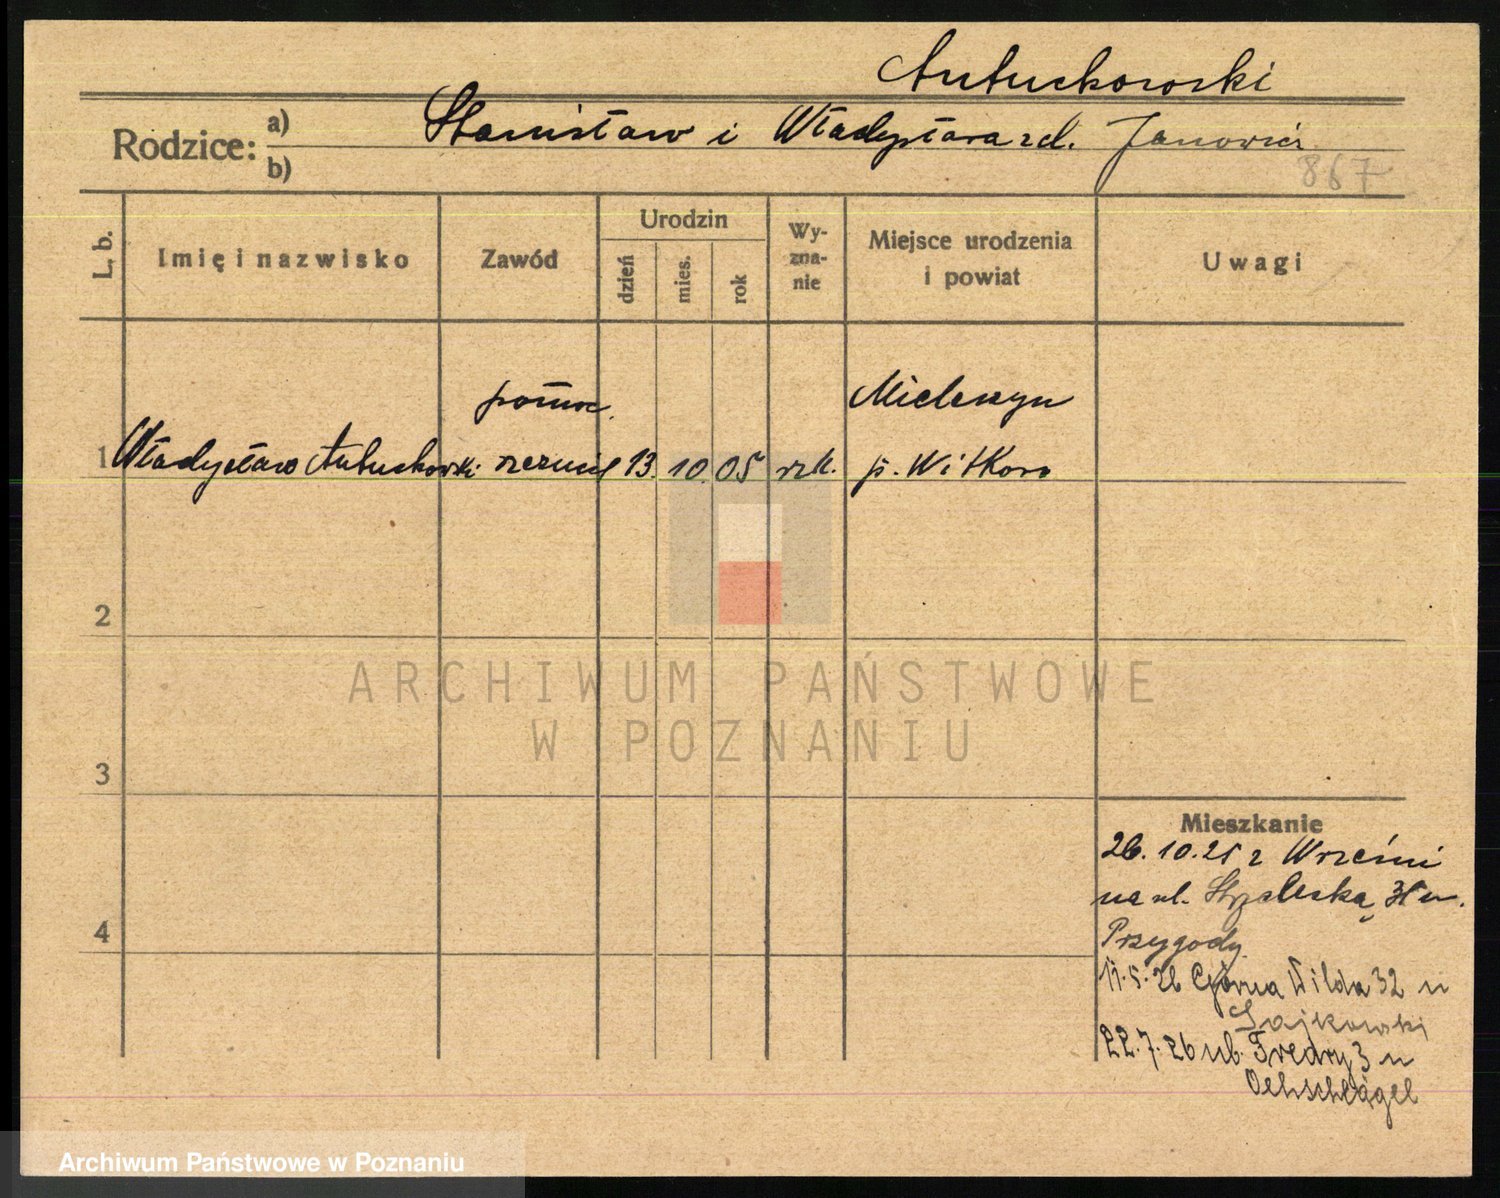 Antuchowski
Rodzice: a) b) Stanisław i Władysława zd. Janowicz
867
L. b. Imię i nazwisko Zawód Urodzin dzień mies. rok Wy-zna-nie Miejsce urodzenia i powiat Uwagi
pomoc. Mieleszyn
1 Władysław Antuchowski rzeźnic 13. 10. 05 rzk. p. Witkowo
2
ARCHIWUM PAŃSTWOWE
W POZNANIU
3
Mieszkanie
26.10.25 z Wrześni
na ul. Strzelecką, 31 u.
4
Przygody
17.5.26 Górna Wilda 32 u
Sajkowski
22.7.26 ul. Fredry 3 u
Oehschlägel
Archiwum Państwowe w Poznaniu